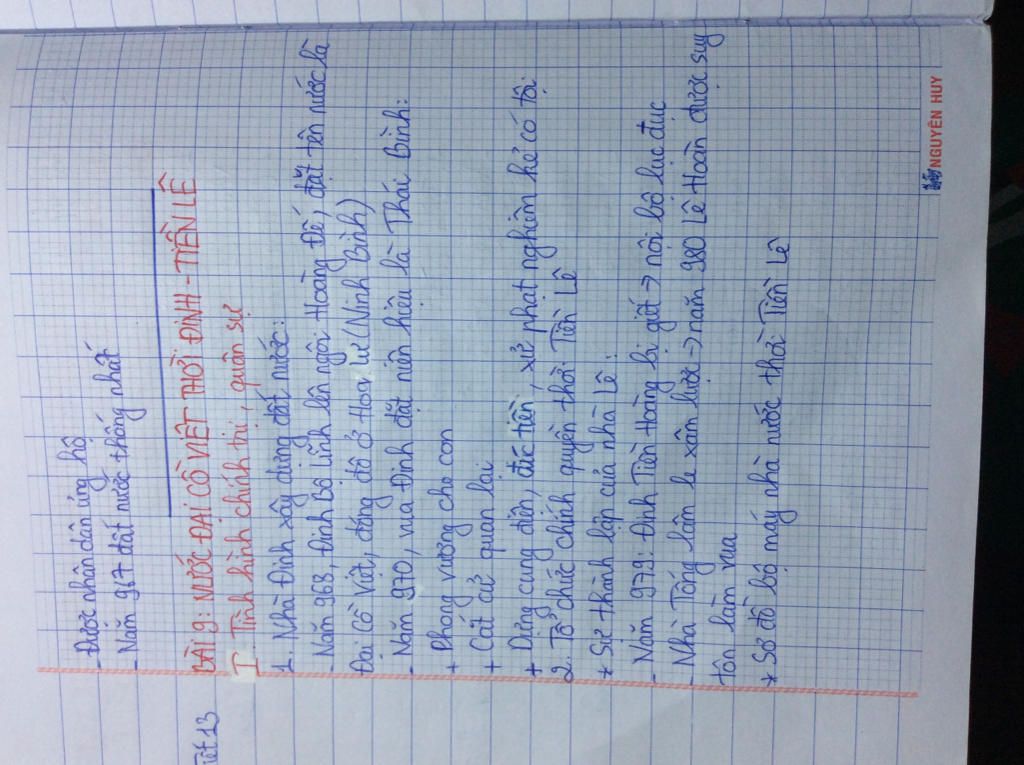 - Được nhân dân ủng hộ
- Năm 967 đất nước thống nhất
Tiết 13
BÀI 9: NƯỚC ĐẠI CỒ VIỆT THỜI ĐINH - TIỀN LÊ
I. Tình hình chính trị, quân sự
1. Nhà Đinh xây dựng đất nước:
- Năm 968, Đinh Bộ Lĩnh lên ngôi Hoàng Đế, đặt tên nước là
Đại Cồ Việt, đóng đô ở Hoa Lư (Ninh Bình)
- Năm 970, vua Đinh đặt niên hiệu là Thái Bình:
+ Phong vương cho con
+ Cắt cử quan lại
+ Dựng cung điện, đúc tiền, xử phạt nghiêm kẻ có tội
2. Tổ chức chính quyền thời Tiền Lê
* Sự thành lập của nhà Lê:
- Năm 979: Đinh Tiên Hoàng bị giết → nội bộ lục đục
- Nhà Tống lăm le xâm lược → năm 980 Lê Hoàn được suy
tôn làm vua
* Sơ đồ bộ máy nhà nước thời Tiền Lê
NGUYÊN HUY